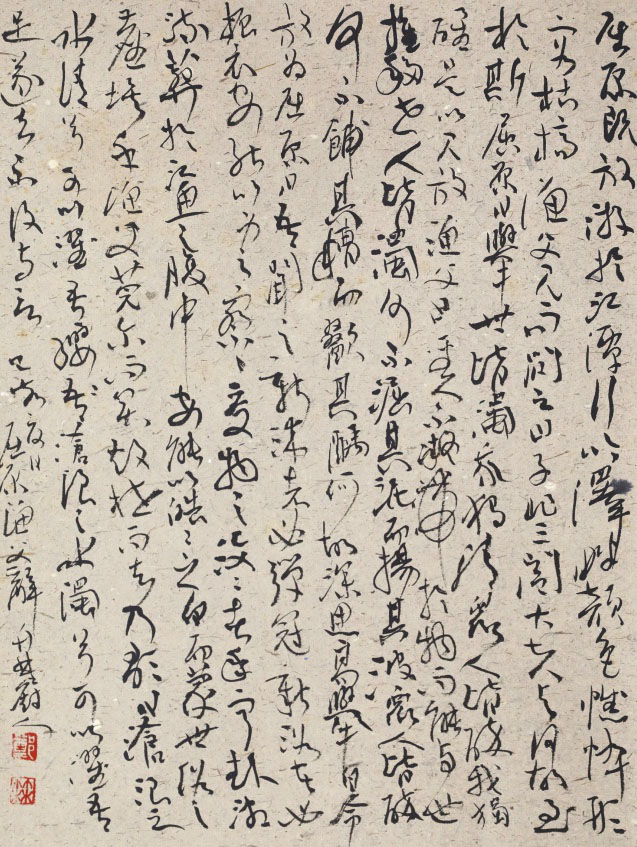 屈原既放游於江潭行吟澤畔顏色憔悴形
容枯槁漁父見而問之曰子非三閭大夫與何故至
於斯屈原曰舉世皆濁我獨清眾人皆醉我獨
醒是以見放漁父曰聖人不凝滯於物而能與世
推移世人皆濁何不淈其泥而揚其波眾人皆醉
何不餔其糟而歠其醨何故深思高舉自令
放為屈原曰吾聞之新沐者必彈冠新浴者必
振衣安能以身之察〻受物之汶〻者乎寧赴湘
流葬於江魚之腹中安能以皓〻之白而蒙世俗之
塵埃乎漁父莞爾而笑鼓枻而去乃歌曰滄浪之
水清兮可以濯吾纓滄浪之水濁兮可以濯吾
足遂去不復與言
屈原漁父辭